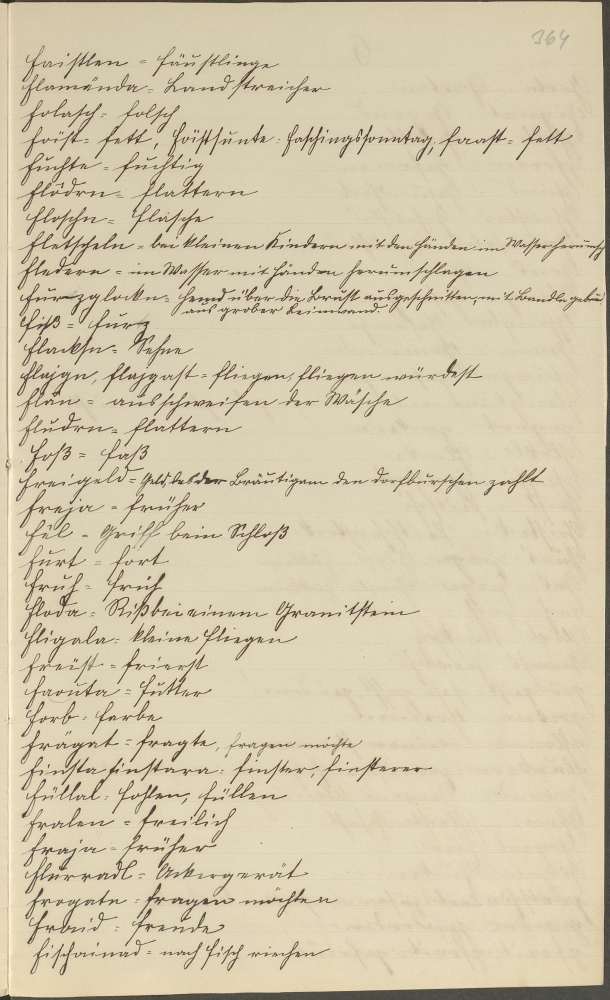 364
Faistlen = Fäustlinge
Flamända = Landstreicher
Folasch = Folsch
Foist = fett, Foistsunte = Faschingssonntag, Faast = fett
Fuchte = fuchtig
Flödrn = flattern
Floschn = Flasche
Fletscheln = bei kleinen Kindern mit den Händen im Wasser herumsch
Fledern = im Wasser mit Händen herumschlagen
Furzglockn = Hemd über die Brust ausgeschnitten, mit Bandl
aus grober Leinwand.
Fiß = Furz
Flacksn = Sehne
Flaign, flaigast = fliegen, fliegen würdest
Flän = ausschweifen der Wäsche
Fludrn = flattern
Foß = Faß
Freigeld = Geld, das der Bräutigam den Dorfburschen zahlt
Freja = früher
Fèl = Griff beim Schloß
Furt = fort
Fruh = früh
Floda = Riß bei einem Granitstein
Fligala = kleine Fliegen
Freist = frierst
Faouta = Futter
Forb = Farbe
Frágat = fragte, fragen möchte
Finsta, finstara = finster, finsterer
Füllal = Fohlen, Füllen
Fralen = freilich
Fraja = früher
Flurradl = Ackergerät
Frogatn = fragen möchten
Fraid = Freude
Fischainad = nach Fisch riechen